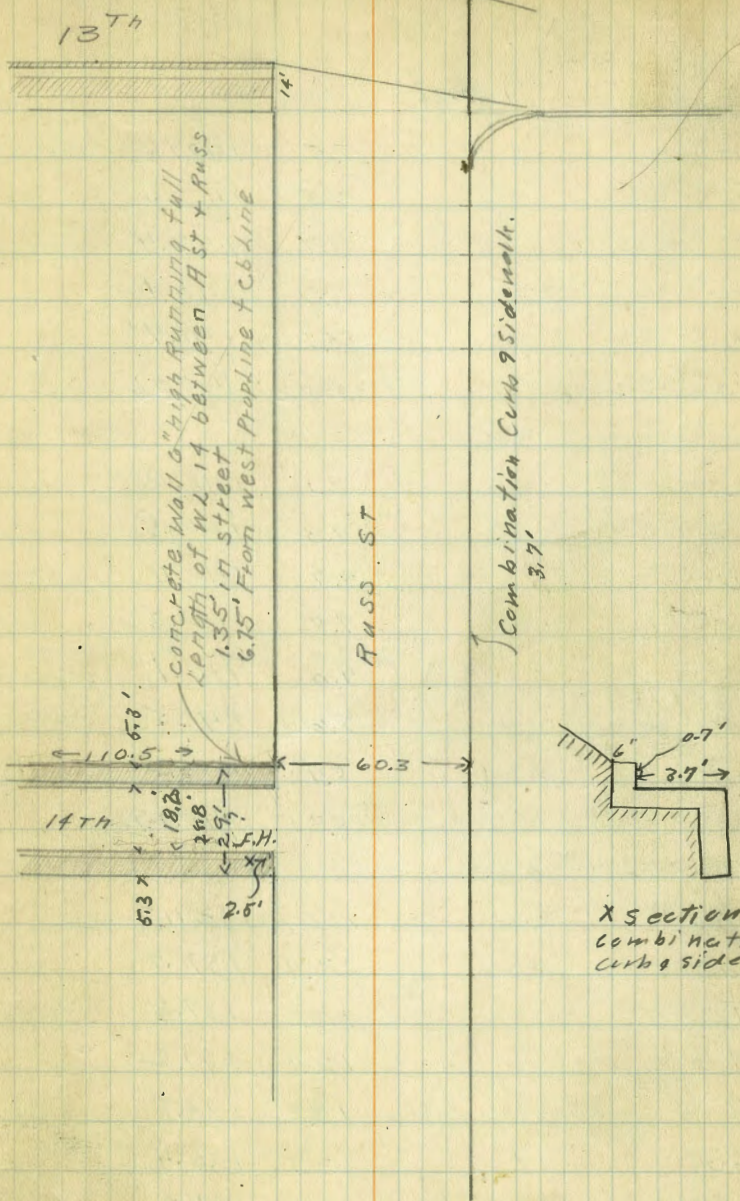 13Th
14'
concrete wall 6" high Running full
Length of WL 14 between A st + Russ
1.35' in street
6.75' From west Propline + Cb Line
Combination Curb & Sidewalk.
3.7'
Russ ST
5.3'
110.5
60.3
14Th
18.2'
29'
F.H.
5.3
2.5'
6"
0.7'
3.7'
X section
combinat
curb & side